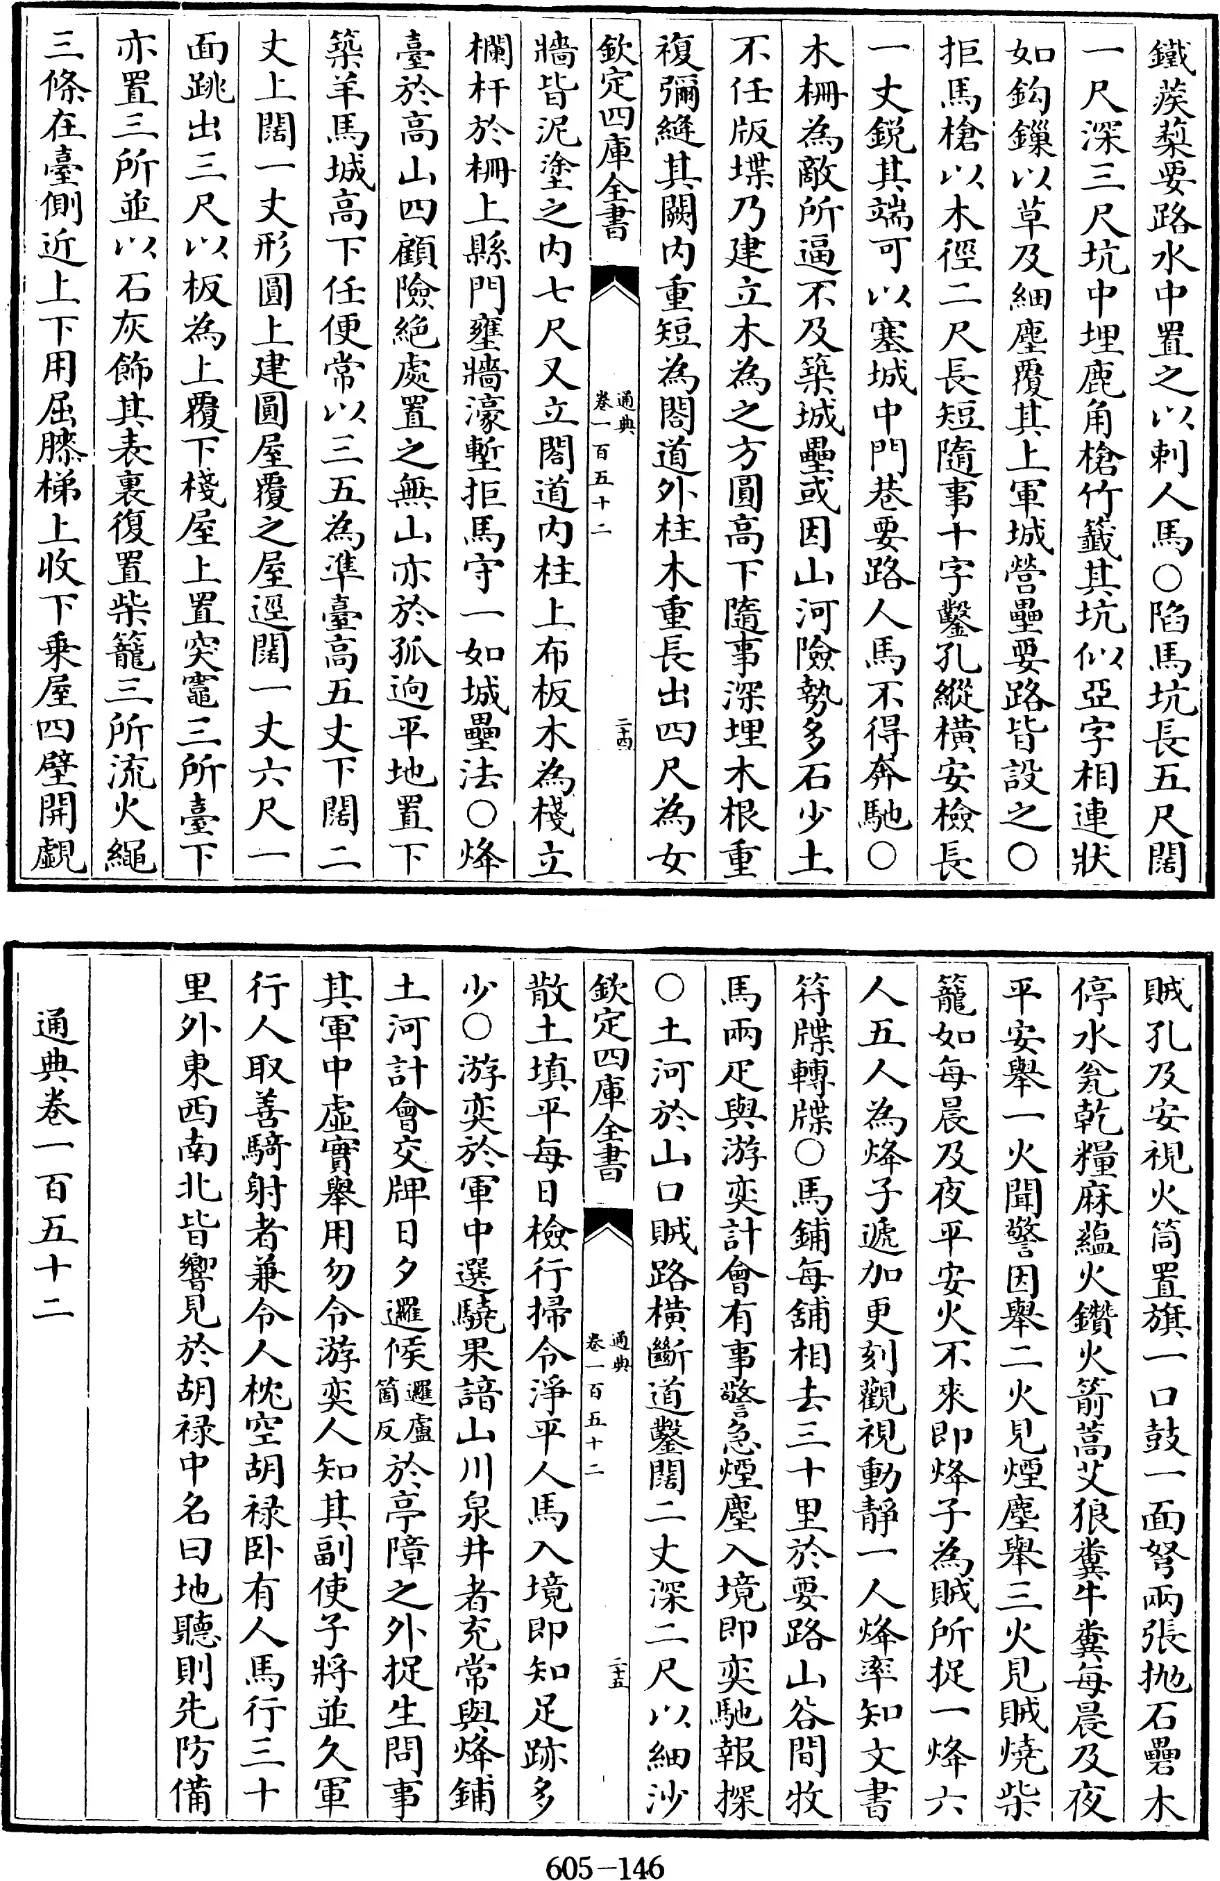 鐵蒺蔾要路水中置之以刺人馬○陷馬坑長五尺闊
一尺深三尺坑中埋鹿角槍竹籤其坑似亞字相連狀
如鈎鏁以草及細塵覆其上軍城營壘要路皆設之○
拒馬槍以木徑二尺長短隨事十字鑿孔縱横安檢長
一丈鋭其端可以塞城中門巷要路人馬不得奔馳○
木柵為敵所逼不及築城壘或因山河險勢多石少土
不任版堞乃建立木為之方圓高下隨事深埋木根重
複彌縫其闕内重短為閣道外柱木重長出四尺為女
欽定四庫全書
通典
卷一百五十二
二十四
牆皆泥塗之内七尺又立閣道内柱上布板木為棧立
欄杆於柵上縣門壅牆濠塹拒馬守一如城壘法○烽
臺於高山四顧險絶處置之無山亦於孤逈平地置下
築羊馬城高下任便常以三五為準臺高五丈下闊二
丈上闊一丈形圓上建圓屋覆之屋逕闊一丈六尺一
面跳出三尺以板為上覆下棧屋上置突竈三所臺下
亦置三所並以石灰飾其表裏復置柴籠三所流火繩
三條在臺側近上下用屈膝梯上收下乗屋四壁開覷
賊孔及安視火筒置旗一口鼓一面弩兩張抛石礨木
停水瓮乾糧麻藴火鑽火箭蒿艾狼糞牛糞每晨及夜
平安舉一火聞警因舉二火見煙塵舉三火見賊燒柴
籠如每晨及夜平安火不來即烽子為賊所捉一烽六
人五人為烽子遞加更刻觀視動靜一人烽率知文書
符牒轉牒○馬鋪每舖相去三十里於要路山谷間牧
馬兩疋與游奕計會有事警急煙塵入境即奕馳報探
○土河於山口賊路横斷道鑿闊二丈深二尺以細沙
欽定四庫全書
通典
卷一百五十二
二十五
散土填平每日檢行掃令淨平人馬入境即知足跡多
少○游奕於軍中選驍果諳山川泉井者充常與烽鋪
土河計會交牌日夕邏候邏盧箇反於亭障之外捉生問事
其軍中虚實舉用勿令游奕人知其副使子將並久軍
行人取善騎射者兼令人枕空胡禄卧有人馬行三十
里外東西南北皆響見於胡禄中名曰地聽則先防備
通典卷一百五十二
605-146